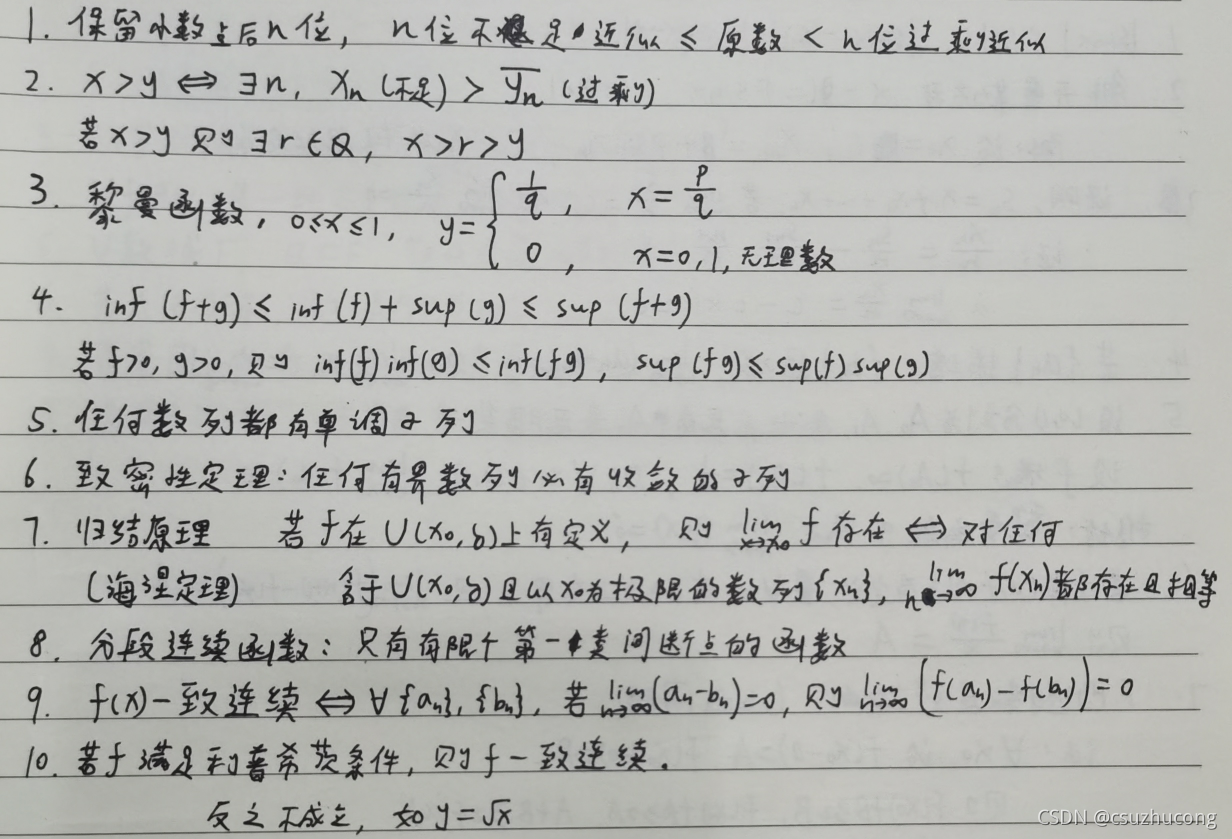 1. 保留小数点后n位, n位不足近似 ≤ 原数 < n位过剩近似
2. x>y ⇔ ∃n, xₙ(不足) > y̅ₙ(过剩)
若x>y 则 ∃r∈Q, x>r>y
3. 黎曼函数, 0≤x≤1, y= { 1/q, x=p/q
0, x=0,1,无理数
4. inf(f+g) ≤ inf(f)+sup(g) ≤ sup(f+g)
若f>0, g>0, 则 inf(f)inf(g) ≤ inf(fg), sup(fg) ≤ sup(f)sup(g)
5. 任何数列都有单调子列
6. 致密性定理:任何有界数列必有收敛的子列
7. 归结原理 若f在U(x₀,δ)上有定义, 则 lim x→x₀ f存在 ⇔ 对任何
(海涅定理) 含于U(x₀,δ)且以x₀为极限的数列{xₙ}, lim n→∞ f(xₙ)都存在且相等
8. 分段连续函数:只有有限个第一类间断点的函数
9. f(x)一致连续 ⇔ ∀{aₙ},{bₙ}, 若 lim n→∞ (aₙ-bₙ)=0, 则 lim n→∞ (f(aₙ)-f(bₙ))=0
10. 若f满足利普希茨条件, 则f一致连续.
反之不成立, 如y=√x
CSDN @csuzhucong